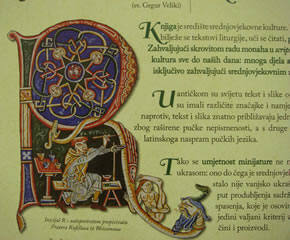 (sv. Grgur Veliki)
Knjiga je središte srednjovjekovne kulture.
bilježe se tekstovi liturgije, uči se čitati, p
Zahvaljujući skrovitom radu monaha u
kultura sve do naših dana: mnoga djela
isključivo zahvaljujući srednjovjekovnim
U antičkom su svijetu tekst i slike o
su imali različite značajke i namje
naprotiv, tekst i slika znatno približavaju jedn
zbog raširene pučke nepismenosti, a s druge
latinskoga naspram pučkih jezika.
Tako se umjetnost minijature ne
ukrasom: ono do čega je srednjovje
stalo nije vanjsko ukra
put produbljenja sadrž
spasenja, koje je osovin
jedini valjani kriterij
či i proizvodi.
Inicijal R s autoportretom prepisivača